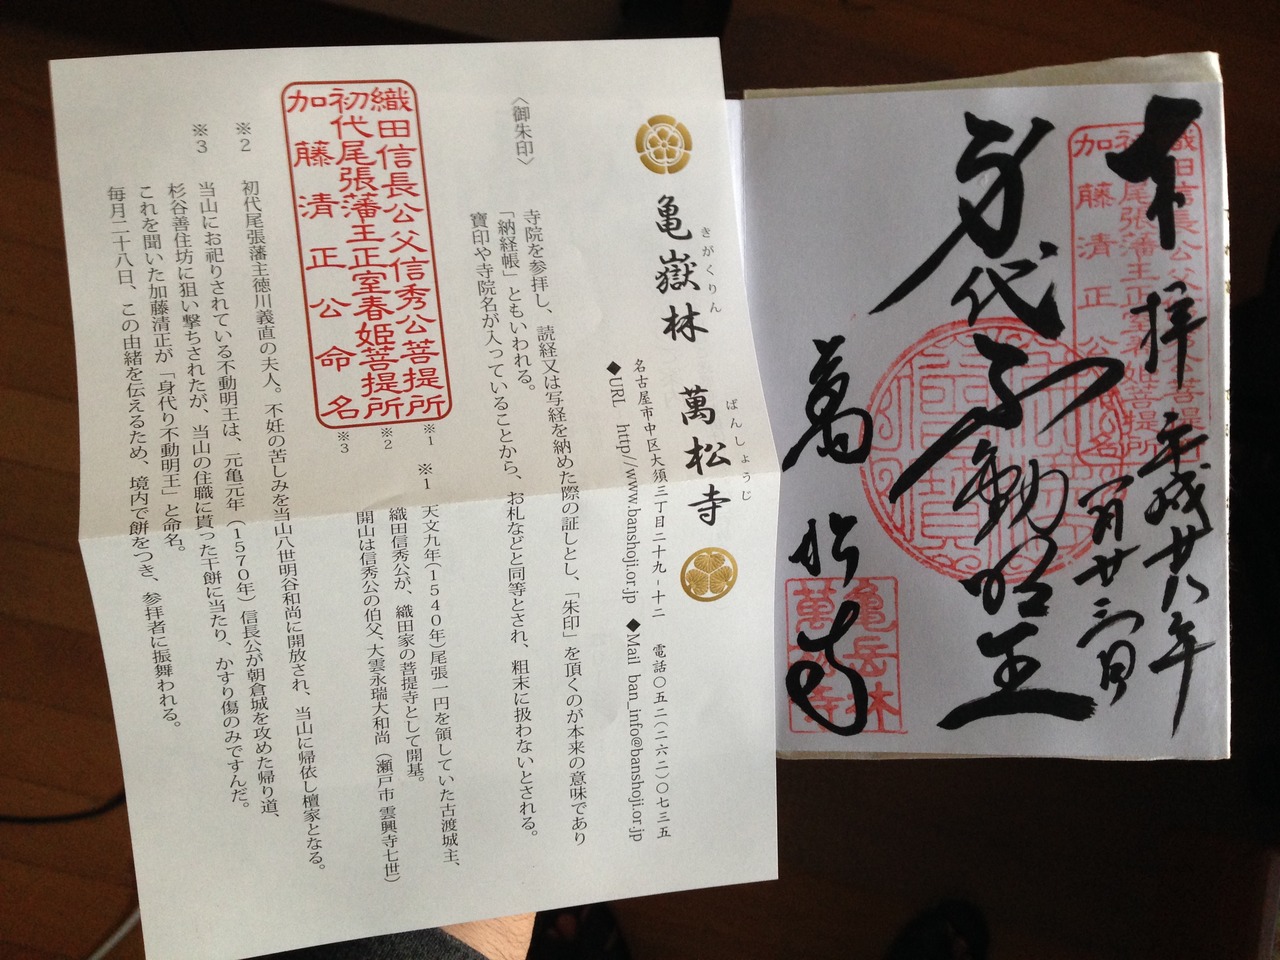 奉拝
平成廿八年
一月廿三日
身代不動明王
萬松寺
織田信長公父信秀公菩提所
初代尾張藩主正室春姫菩提所
加藤清正公命名
亀岳林
萬松寺
亀嶽林 萬松寺
きがくりん ばんしょうじ
名古屋市中区大須三丁目二十九-十二 電話〇五二(二六二)〇七三五
◆URL http//www.banshoji.or.jp ◆Mail ban_info@banshoji.or.jp
〈御朱印〉
寺院を参拝し、読経又は写経を納めた際の証しとし、「朱印」を頂くのが本来の意味であり
「納経帳」ともいわれる。
寶印や寺院名が入っていることから、お札などと同等とされ、粗末に扱わないとされる。
織田信長公父信秀公菩提所 ※1
初代尾張藩主正室春姫菩提所 ※2
加藤清正公命名 ※3
※1 天文九年(1540年)尾張一円を領していた古渡城主、
織田信秀公が、織田家の菩提寺として開基。
開山は信秀公の伯父、大雲永瑞大和尚(瀬戸市 雲興寺七世)
※2 初代尾張藩主徳川義直の夫人。不妊の苦しみを当山八世明谷和尚に開放され、当山に帰依し檀家となる。
※3 当山にお祀りされている不動明王は、元亀元年(1570年)信長公が朝倉城を攻めた帰り道、
杉谷善住坊に狙い撃ちされたが、当山の住職に貰った干餅に当たり、かすり傷のみですんだ。
これを聞いた加藤清正が「身代り不動明王」と命名。
毎月二十八日、この由緒を伝えるため、境内で餅をつき、参拝者に振舞われる。